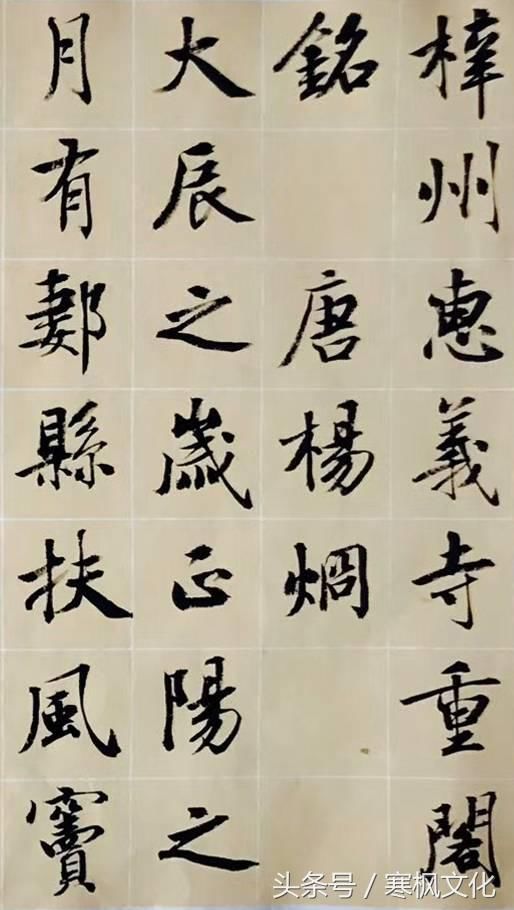 梓州惠義寺重閣
銘 唐楊烱
大辰之歲正陽之
月有郪縣扶風竇
头条号 / 寒枫文化